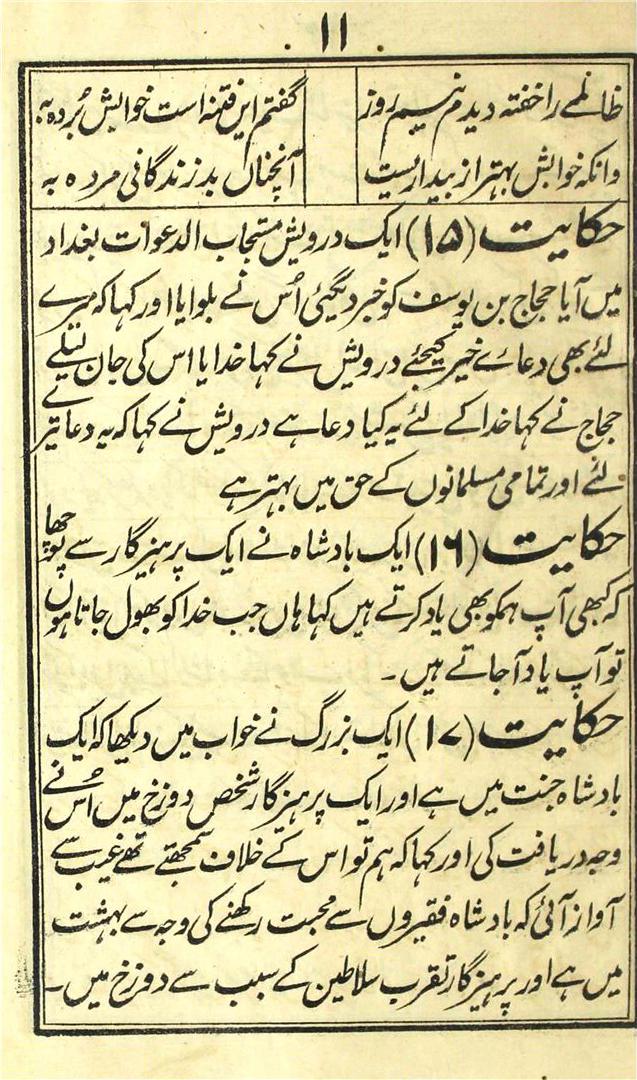 ۱۱
ظالمے را خفتہ دیدم نیم روز گفتم این فتنہ است خوابش بُردہ بہ
وانکہ خوابش بہتر از بیداریست آنچناں بد زندگانی مردہ بہ
حکایت (۱۵) ایک درویش مستجاب الدعوات بغداد
میں آیا حجاج بن یوسف کو خبر دیگئی اُس نے بلوایا اور کہا کہ میرے
لئے بھی دعاے خیر کیجئے درویش نے کہا خدایا اس کی جان لیلے
حجاج نے کہا خدا کے لئے یہ کیا دعا ہے درویش نے کہا کہ یہ دعا تیرے
لئے اور تمامی مسلمانوں کے حق میں بہتر ہے
حکایت (۱۶) ایک بادشاہ نے ایک پرہیزگار سے پوچھا
کہ کبھی آپ ہمکو بھی یاد کرتے ہیں کہا ہاں جب خدا کو بھول جاتا ہوں
تو آپ یاد آجاتے ہیں۔
حکایت (۱۷) ایک بزرگ نے خواب میں دیکھا کہ ایک
بادشاہ جنت میں ہے اور ایک پرہیزگار شخص دوزخ میں اُس نے
وجہ دریافت کی اور کہا کہ ہم تو اس کے خلاف سمجھتے تھے غیب سے
آواز آئی کہ بادشاہ فقیروں سے محبت رکھنے کی وجہ سے بہشت
میں ہے اور پرہیزگار تقرب سلاطین کے سبب سے دوزخ میں۔